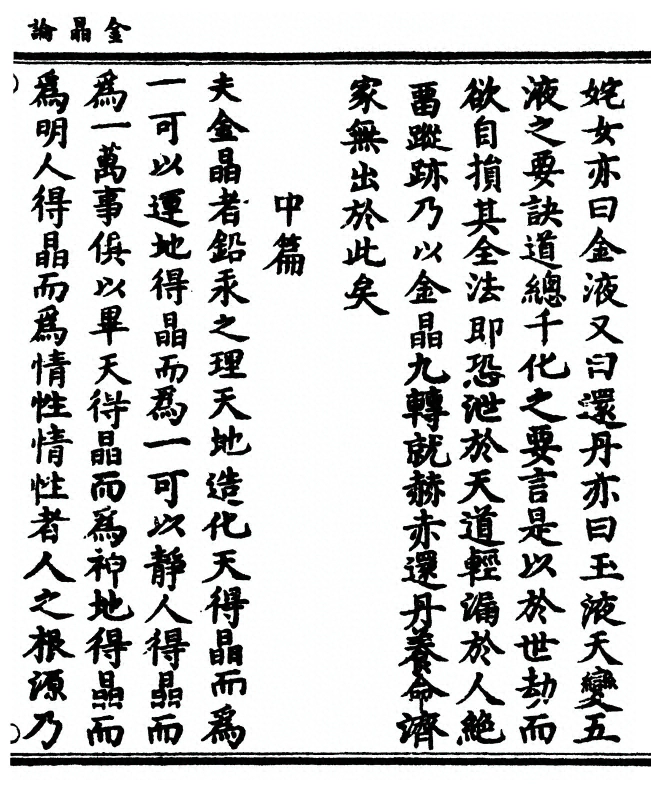 金晶論
姹女亦曰金液又曰還丹亦曰玉液天變五
液之要訣道總千化之要言是以於世劫而
欲自損其全法即恐泄於天道輕漏於人絕
畱蹤跡乃以金晶九轉就赫赤還丹養命濟
家無出於此矣
中篇
夫金晶者鉛汞之理天地造化天得晶而為
一可以運地得晶而為一可以靜人得晶而
為一萬事俱以畢天得晶而為神地得晶而
為明人得晶而為情性情性者人之根源乃